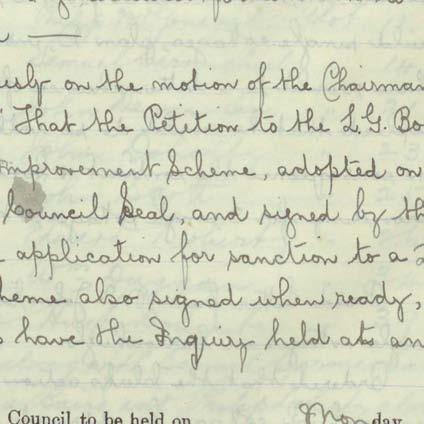 on the motion of the Chairman
That the Petition to the L.G. Bo
Improvement Scheme, adopted on
Council Seal, and signed by th
application for sanction to a
heme also signed when ready,
have the Inquiry held at an
Council to be held on Monday